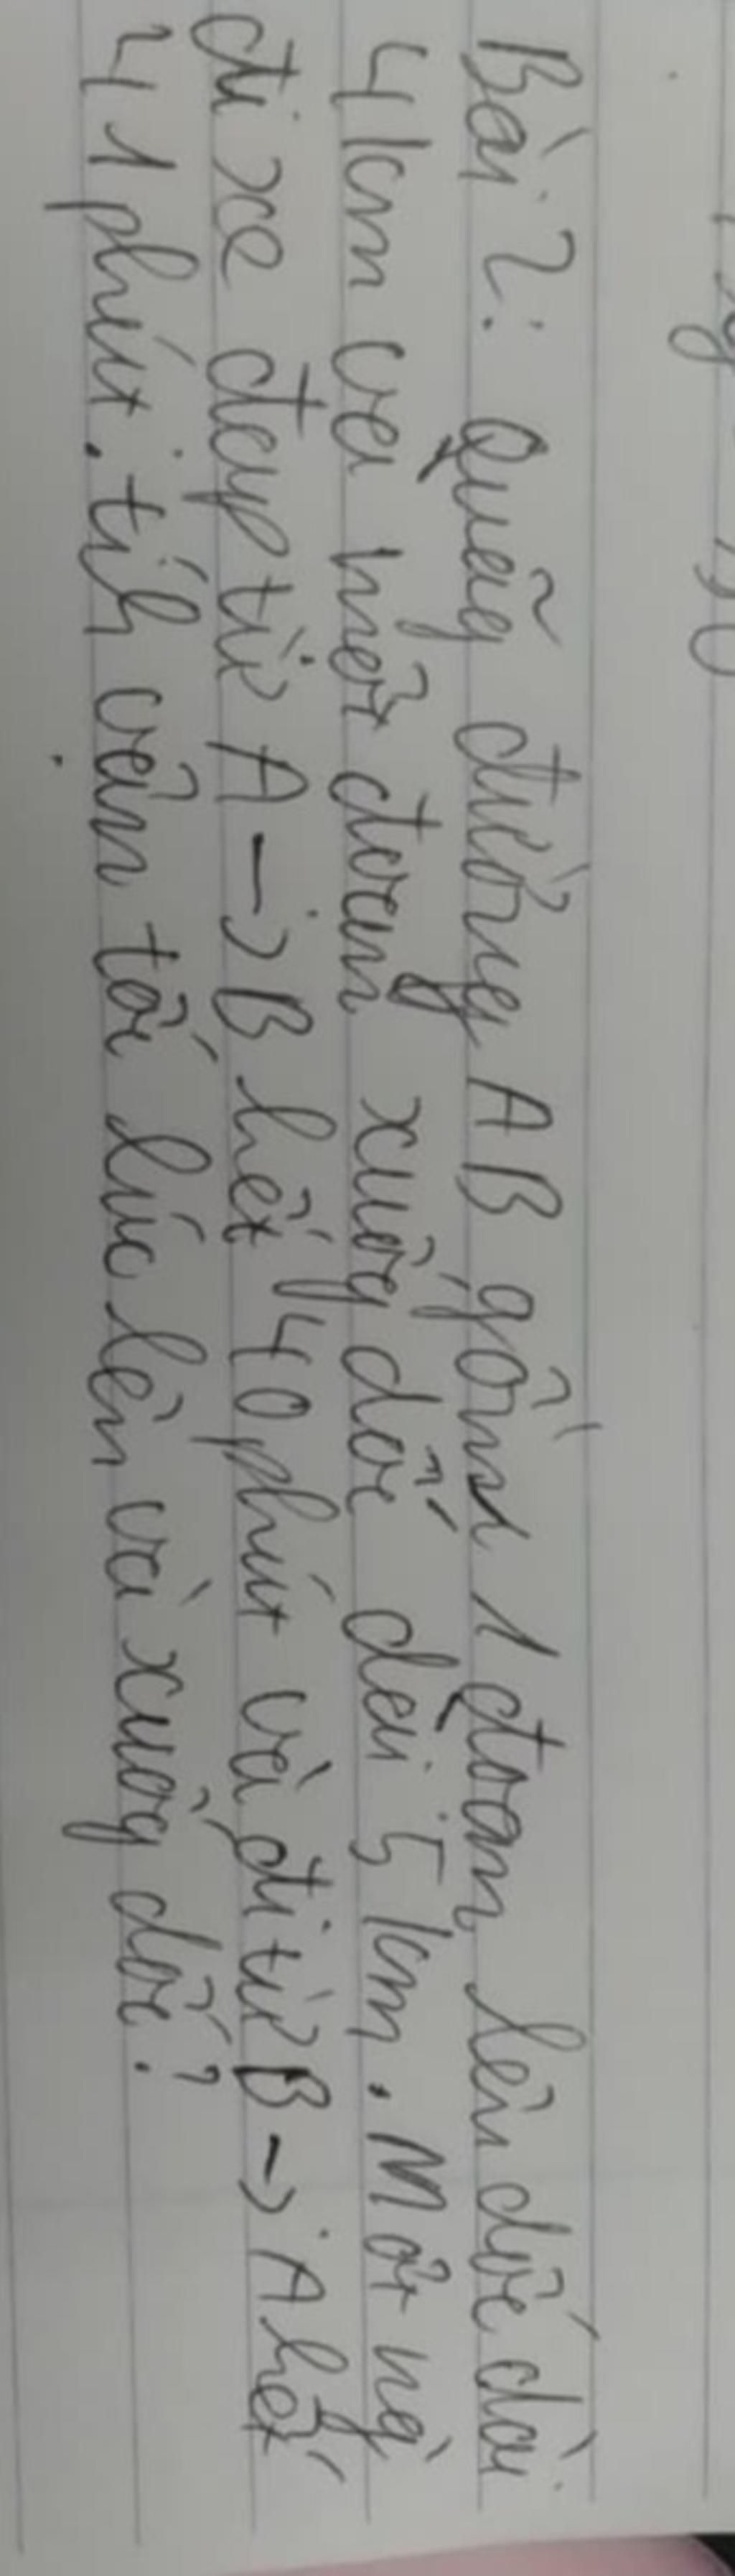 Bài 2: Quãg đường AB gồm 1 đoạn lên dốc dài
4km và một đoạn xuốg dốc dài 5km. Một ng
đi xe đạp từ A → B hết 40 phút và đi từ B → A hết
41 phút. tíh vận tốc lúc lên và xuốg dốc?